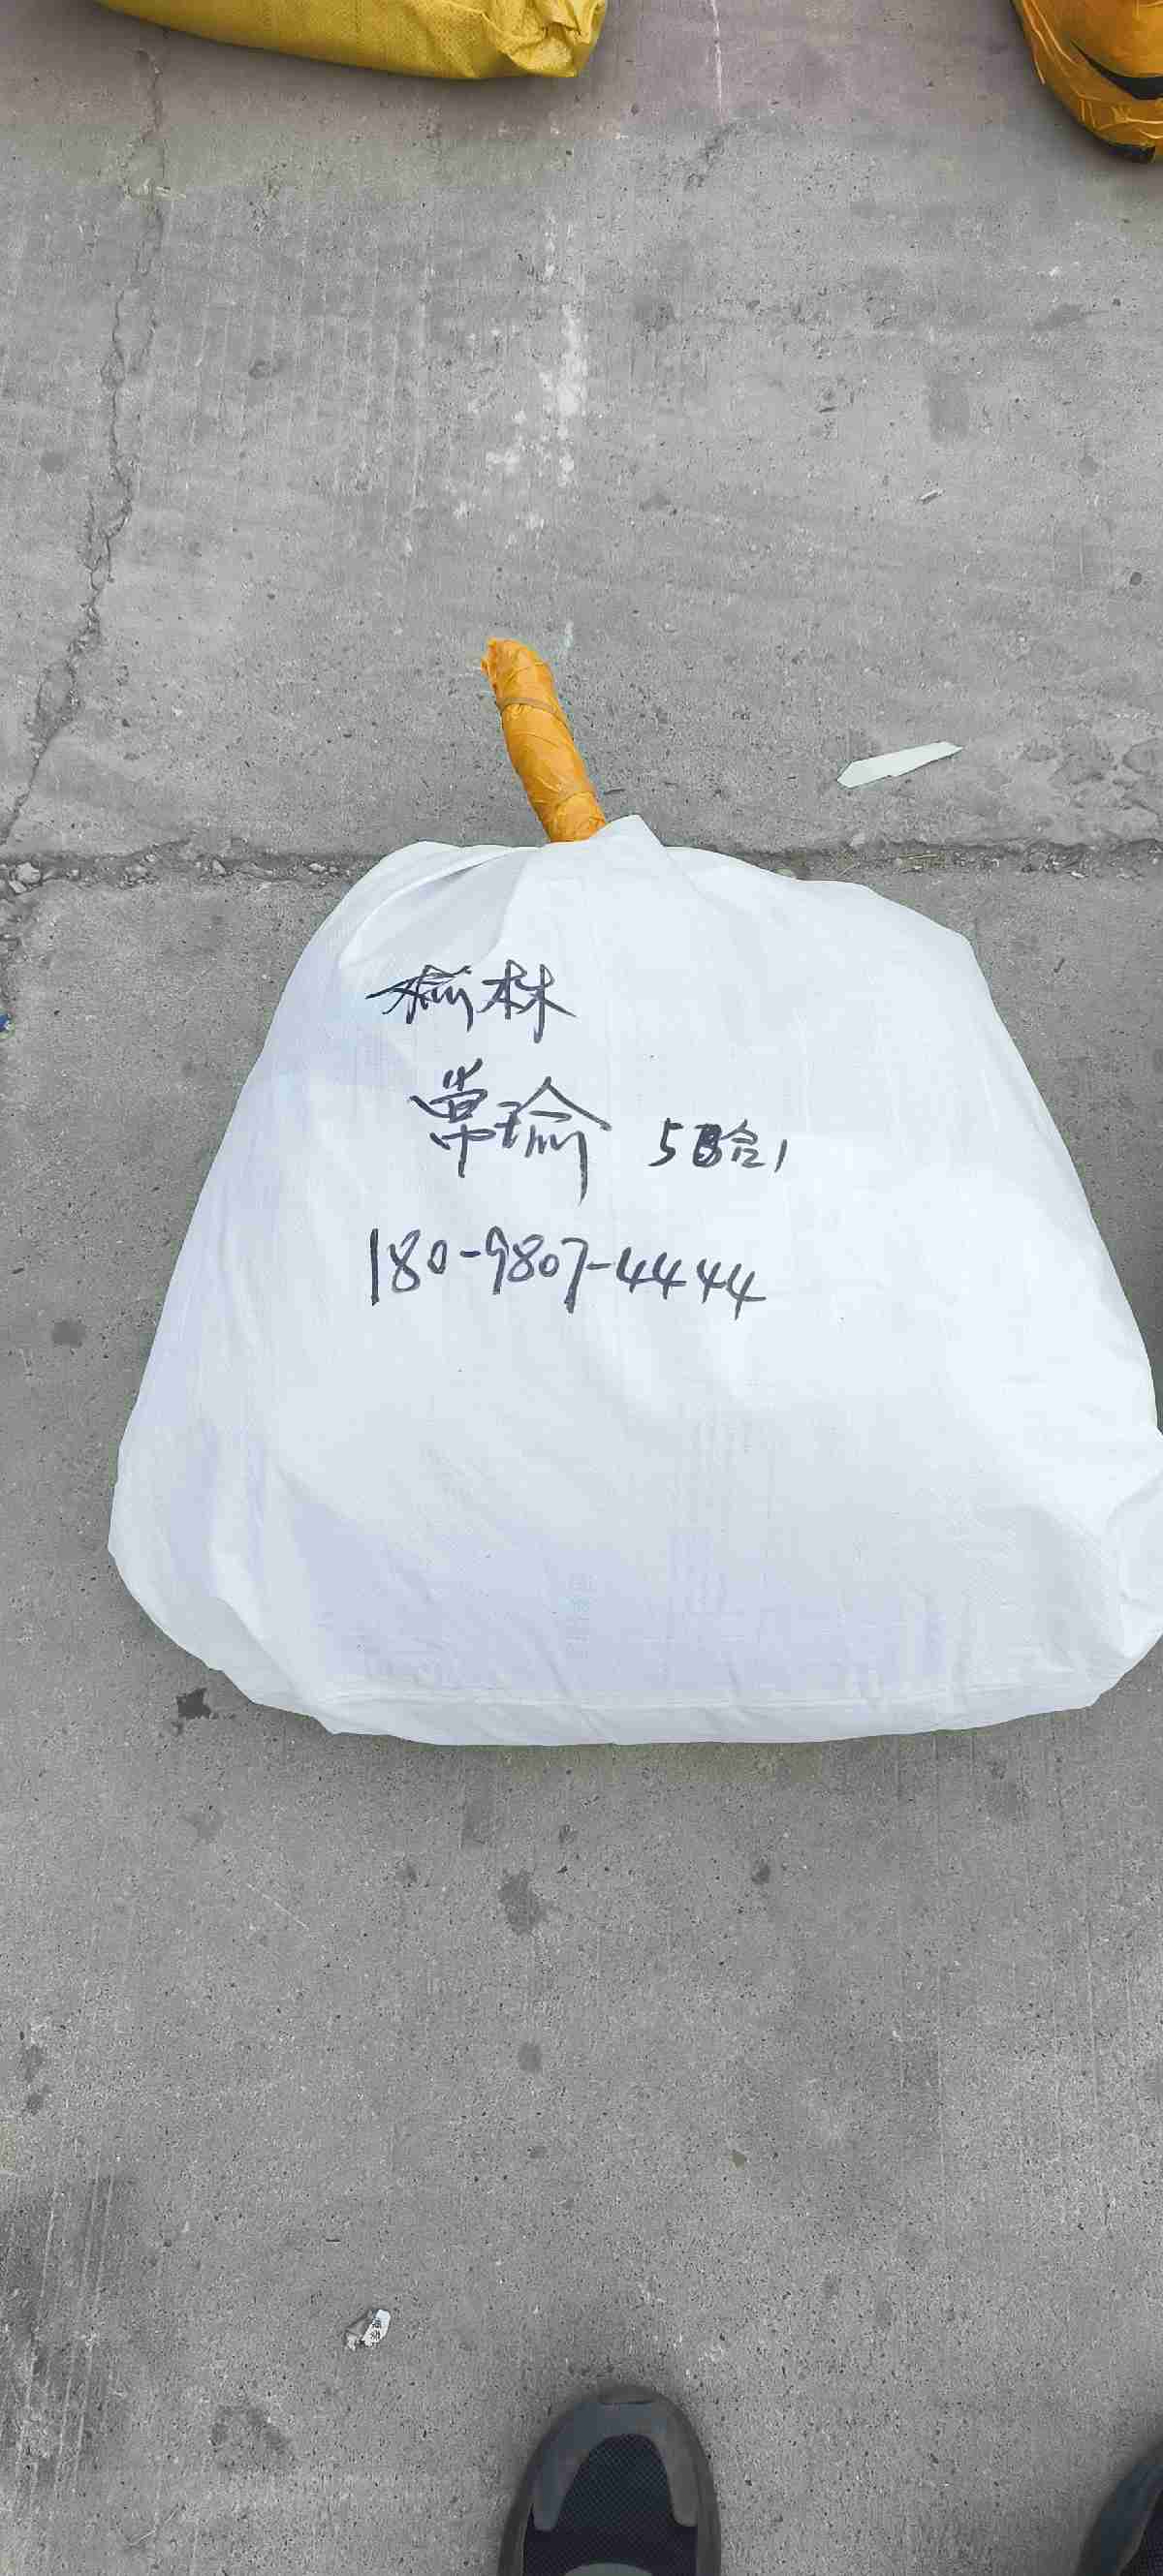 榆林
常瑜 5合1
180-9807-4444